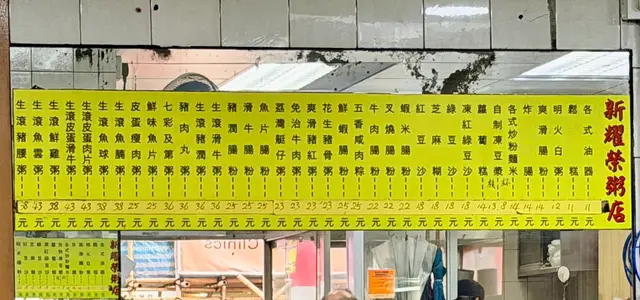 新耀榮粥店
各式油器 11元
鬆糕 11元
明火白粥 12元
爽滑腸粉 14元
炸腸 14元
各式炒粉麵米 14元
自制凍豆漿 瓶13 杯8元
蘿蔔糕 14元
凍紅綠豆沙 18元
綠豆沙 18元
芝麻糊 18元
紅豆沙 18元
蝦米腸粉 22元
叉燒腸粉 22元
牛肉腸粉 22元
五香咸肉粽 25元
鮮蝦腸粉 25元
花生豬骨粥 23元
爽滑豬紅粥 23元
免治牛肉粥 23元
荔灣艇仔粥 23元
魚片腸粉 25元
滑牛腸粉 25元
豬潤腸粉 25元
生滾滑牛粥 36元
豬肉丸粥 36元
七彩及第粥 36元
鮮味魚片粥 25元
皮蛋瘦肉粥 25元
生滾魚腩粥 38元
生滾魚球粥 38元
生滾皮蛋肉片粥 43元
生滾皮蛋滑牛粥 43元
生滾鮮雞粥 38元
生滾魚雲粥 43元
生滾豬腰粥 38元
Clinics